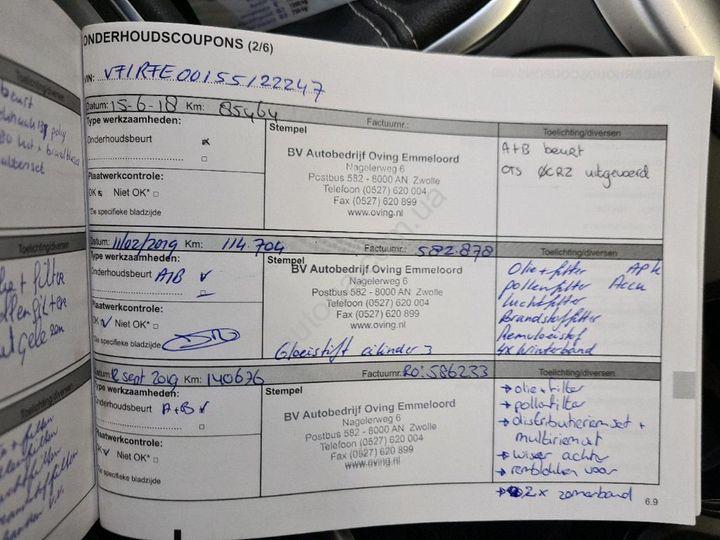 ONDERHOUDSCOUPONS (2/6)
VIN: VF1R7E00155122247
Datum: 15-6-18 Km: 85464 Factuurnr.: Toelichting/diversen
Type werkzaamheden:
Onderhoudsbeurt
Plaatwerkcontrole:
OK Niet OK*
*Zie specifieke bladzijde
Stempel
BV Autobedrijf Oving Emmeloord
Nagelerweg 6
Postbus 582 - 8000 AN Zwolle
Telefoon (0527) 620 004
Fax (0527) 620 899
www.oving.nl
A+B beurt
OTS 0CRZ uitgevoerd
Datum: 11/02/2019 Km: 114.704 Factuurnr.: 582.878 Toelichting/diversen
Type werkzaamheden:
Onderhoudsbeurt A+B
Plaatwerkcontrole:
OK Niet OK*
*Zie specifieke bladzijde
Stempel
BV Autobedrijf Oving Emmeloord
Nagelerweg 6
Postbus 582 - 8000 AN Zwolle
Telefoon (0527) 620 004
Fax (0527) 620 899
www.oving.nl
Gloeistift cilinder 3
Olie + filter APK
pollenfilter Accu
Luchtfilter
Brandstoffilter
Remvloeistof
4x Winterband
Datum: 12 sept 2019 Km: 140676 Factuurnr.: RO: 586233 Toelichting/diversen
Type werkzaamheden:
Onderhoudsbeurt A+B
Plaatwerkcontrole:
OK Niet OK*
*Zie specifieke bladzijde
Stempel
BV Autobedrijf Oving Emmeloord
Nagelerweg 6
Postbus 582 - 8000 AN Zwolle
Telefoon (0527) 620 004
Fax (0527) 620 899
www.oving.nl
→ olie + filter
→ pollenfilter
→ distributieriemset +
multiriemset
→ wisser achter
→ remblokken voor
→ 2x zomerband
6.9
Toelichting/diversen
beurt
Toelichting/diversen